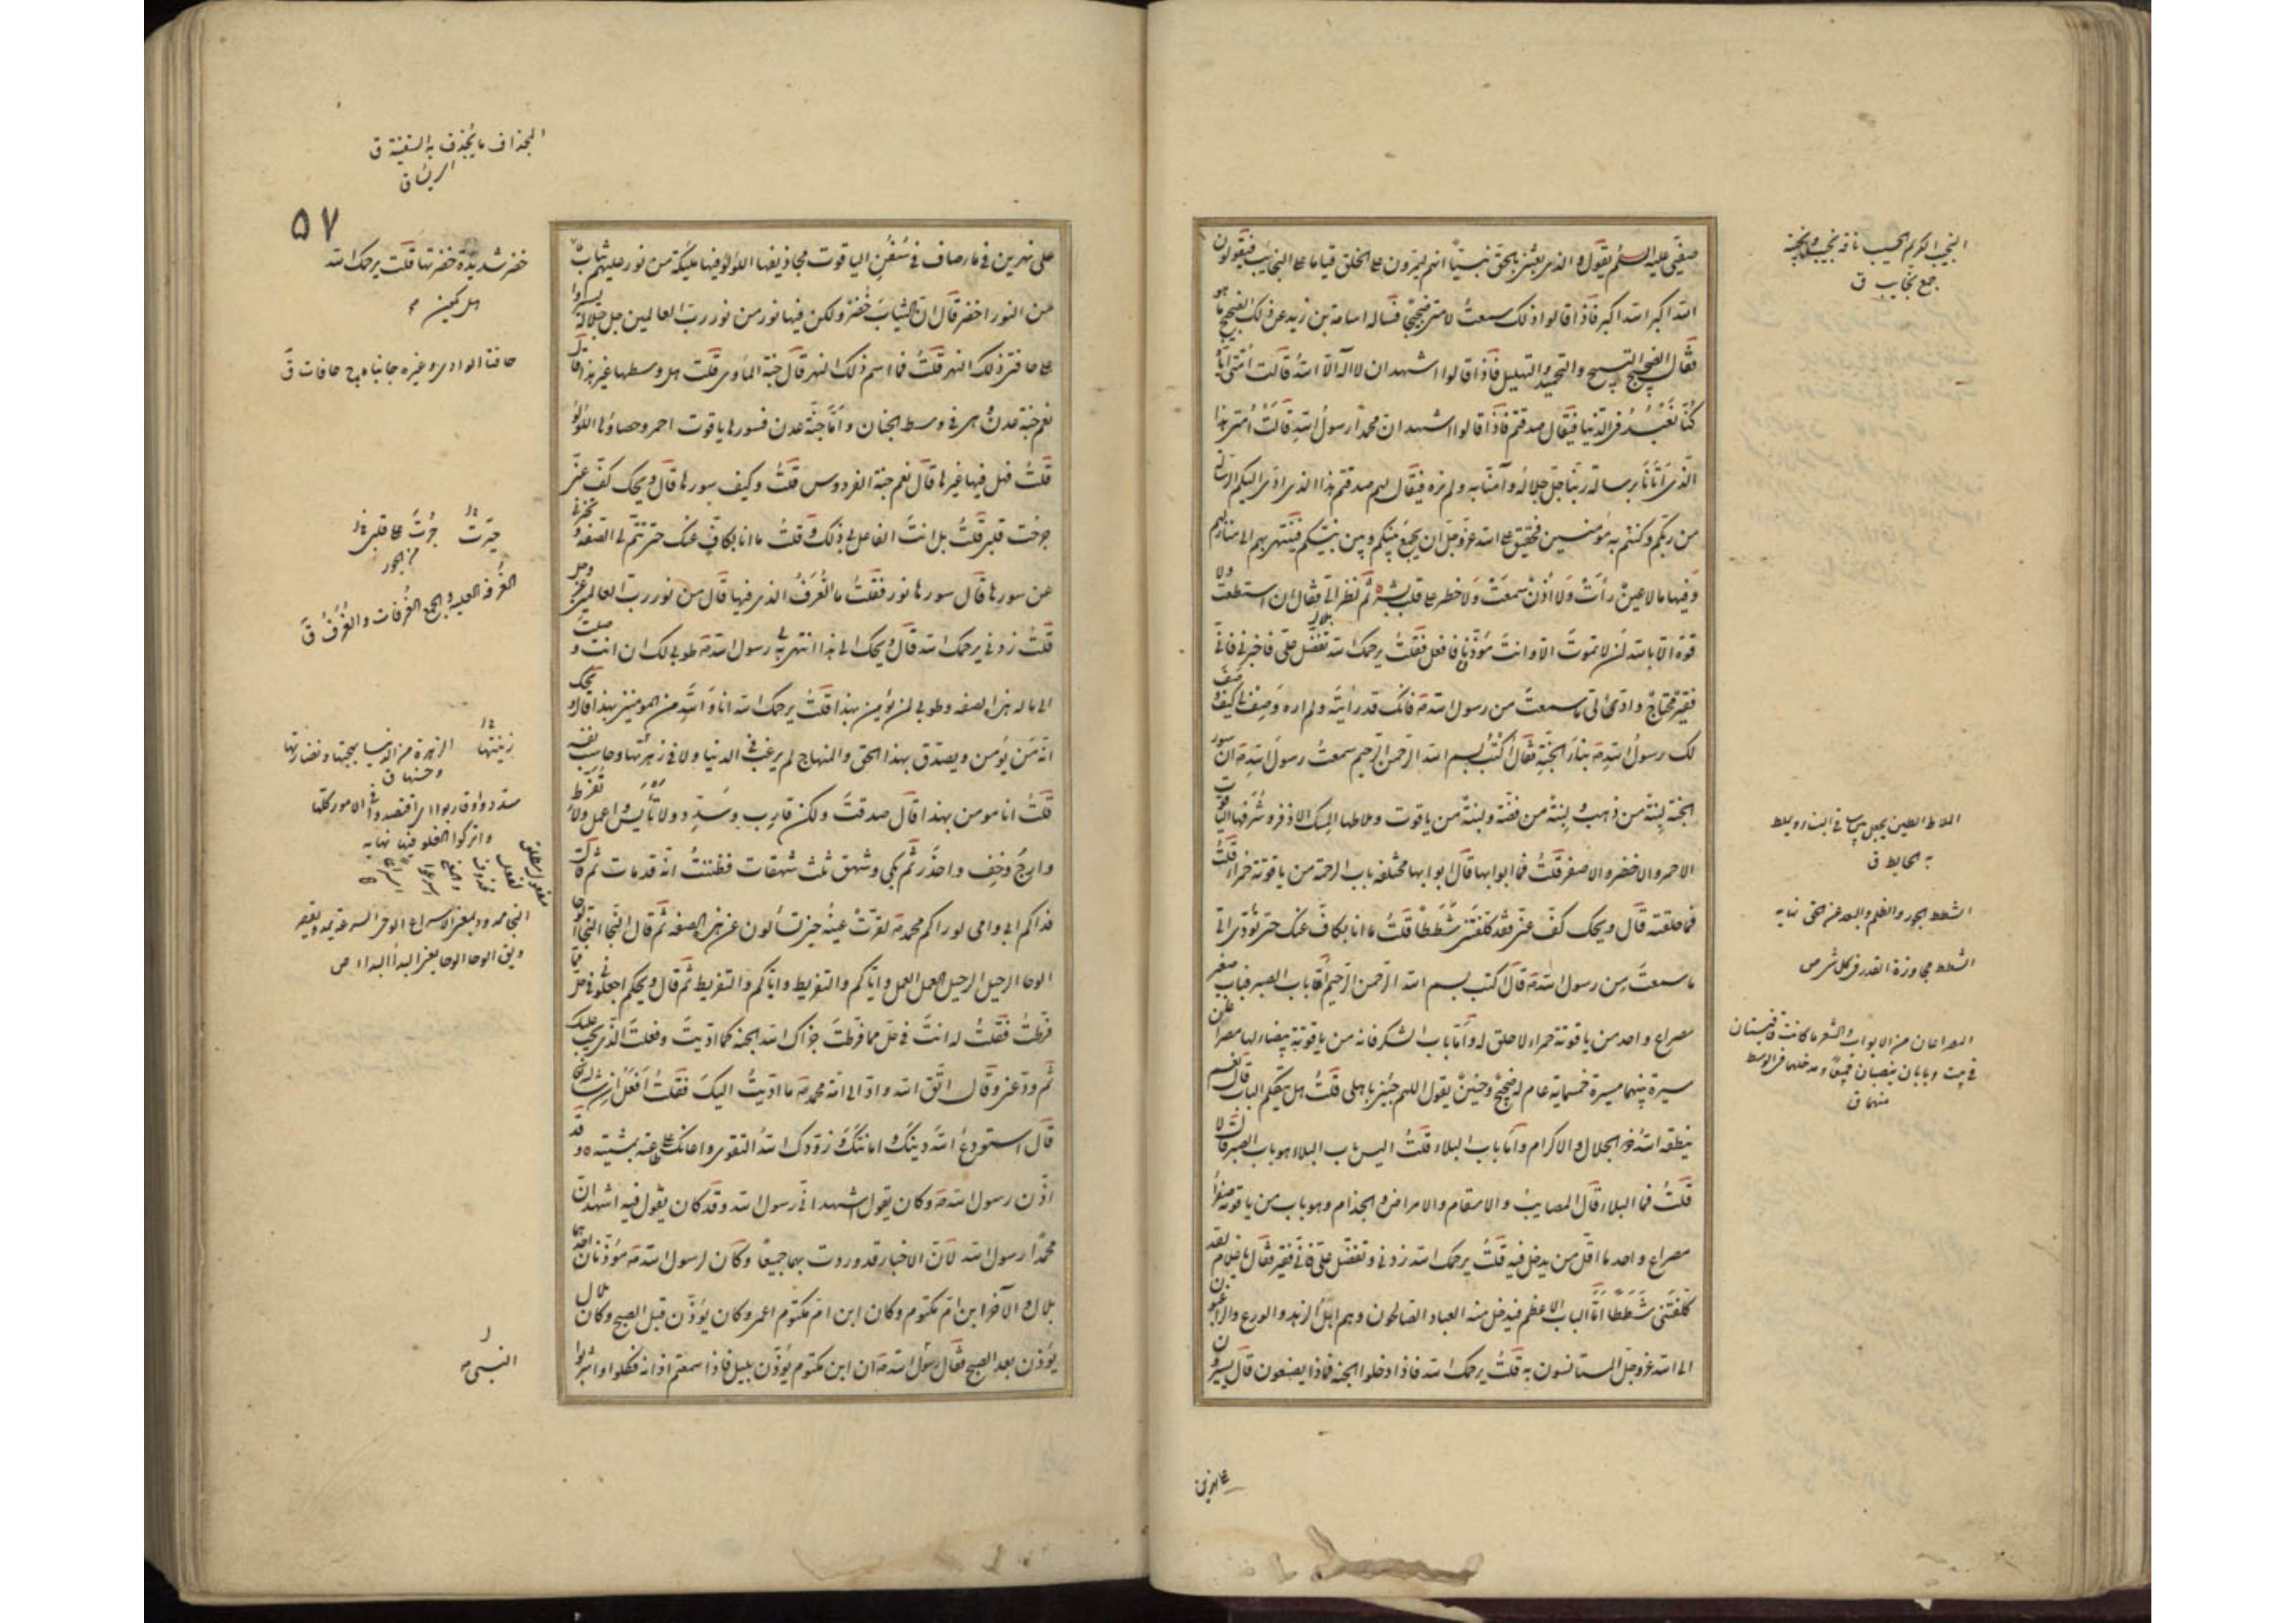 صفيّي عليه السلم يقول والذي بعثني بالحق نبيّا انهم ليمرون على الخلق قياما على النجائب فيقولون
الله اكبر الله اكبر فاذا قالوا ذلك سمعتُ لامتي ضجيجًا فساله اسامة بن زيد عن ذلك الضجيج ما هو
فقال الضجيج التسبيح والتحميد والتهليل فاذا قالوا اشهد ان لا اله الا الله قالت امّتي ايّاه
كُنّا نَعْبُدُ في الدّنيا فيقال صدقتم فاذا قالوا اشهد ان محمدًا رسول الله قالت امّتي هذا
الّذي اتانا برسالة ربّنا جلّ جلاله وآمنّا به ولم نره فيقال لهم صدقتم هذا الذي ادّى اليكم الرسالة
من ربّكم وكنتم به مؤمنين فحقيق على الله عزّ وجلّ ان يجمع بينكم وبين نبيّكم فينتهي بهم الى منازلهم
وفيها ما لا عينٌ رأت ولا اُذُن سمعَتْ ولا خطر على قلب بشر ثم نظر الىّ فقال ان استطعت ولا
قوة الا بالله ان لا تموتَ الا وانت مؤذّن فافعل فقلت يرحمك الله تفضّل علىّ فاخبرني فاني
فقير محتاج وادّ الىّ ما سمعتَ من رسول الله صه فانك قد رأيته ولم اره وصِف لي كيف وصف
لك رسول الله صه بناء الجنّة فقال اكتُبْ بسم الله الرحمن الرحيم سمعت رسول الله صه ان سور
الجنة لبنة من ذهب ولبنة من فضّة ولبنة من ياقوت وملاطها المسك الاذفر وشُرَفُها الياقوت
الاحمر والاخضر والاصفر قلتُ فما ابوابها قال ابوابها مختلفه باب الرحمة من ياقوتة حمراء قلتُ
فما حلقته قال ويحك كفّ عنّي فقد كلّفتني شططًا قلتُ ما انا بكافّ عنك حتى تؤدّي الىّ
ما سمعتَ من رسول الله صه قال اكتب بسم الله الرّحمن الرّحيم امّا باب الصبر فباب صغير
مصراع واحد من ياقوتة حمراء لا حلق له وامّا باب الشكر فانه من ياقوتة بيضاء لها مصراعان
مسيرة بينهما مسيرة خمسماية عام له ضجيج وحنين يقول اللهم جئني باهلي قلتُ هل يتكلم الباب قال نعم
ينطقه الله ذو الجلال والاكرام وامّا باب البلاء قلتُ اليس باب البلاء هو باب الصبر قال لا
قلتُ فما البلاء قال المصايب والاسقام والامراض والجذام وهو باب من ياقوتة صفراء
مصراع واحد ما اقلّ من يدخل فيه قلتُ يرحمك الله زدني وتفضّل علىّ فاني فقير فقال يا غلام لقد
كلّفتني شططًا امّا الباب الاعظم فيدخل منه العباد الصالحون وهم اهل الزهد والورع والراغبون
الى الله عزّ وجلّ المستانسون به قلتُ يرحمك الله فاذا دخلوا الجنة فماذا يصنعون قال يسيرون
على نهرين
النجيب الكريم الحسيب ناقة نجيب ونجيبة
جمع نجايب ق
الملاط الطين يجعل بين سافي البناء ويملط
به الحايط ق
الشطط الجور والظلم والبعد عن الحق نهايه
الشطط مجاوزة القدر في كل شي ص
المصراعان من الابواب والشعر ما كانت قافيتان
في بيت وبابان ينصبان جميعا ومدخلهما في الوسط
منهما ق
على نهرين في ماء صاف في سُفُن الياقوت مجاذيفها اللؤلؤ فيها مليكة من نور عليهم ثياب
من النور اخضر قال ان الثياب خضر ولكن فيها نور من نور رب العالمين جل جلاله يسيروا
على حافتي ذلك النهر قلتُ فما اسم ذلك النهر قال جنة الماوى قلت هل وسطها غير هذا قال
نعم جنة عدن وهي في وسط الجنان وامّا جنّة عدن فسورها ياقوت احمر وحصاؤها اللؤلؤ
قلتُ فهل فيها غيرها قال نعم جنة الفردوس قلتُ وكيف سورها قال ويحك كفّ عنّي
جرحت قلبي قلتُ بل انت الفاعل بي ذلك وقلتُ ما انا بكافٍّ عنك حتى تتمّ لي الصفة وتخبرني
عن سورها قال سورها نور فقلتُ ما الغُرَفُ الذي فيها قال من نور رب العالمين عز وجل
قلتُ زدني يرحمك الله قال ويحك الى هذا انتهى بي رسول الله صه طوبى لك ان انت وصلتَ
الى ما له هذه الصفه وطوبى لمن يؤمن بهذا قلتُ يرحمك الله انا والله من المؤمنين بهذا قال ويحك
انّه مَن يؤمن ويصدق بهذا الحق والمنهاج لم يرغب في الدنيا ولا في زهرتها وحاسب نفسه
قلتُ انا مومن بهذا قال صدقتَ ولكن قارِب وسَدِّد ولا تايس واعمل ولا تفرّط
وارجُ وخِف واحذر ثم بكى وشهق ثلث شهقات فظننتُ انّه قد مات ثم قال
فداكم ابي وامي لو راكم محمد صه لقرّت عينه حين تسألون عن هذه الصفة ثم قال النجا النجا الوحا
الوحا الرحيل الرحيل العمل العمل واياكم والتفريط واياكم والتفريط ثم قال ويحكم اجعلوني في حلّ مما
فرّطتُ فقلتُ له انتَ في حلّ مما فرّطتَ جزاك الله الجنة كما ادّيتَ وفعلتَ الذي يجب عليك
ثم ودّعني وقال اتّق الله وادّ الى امّة محمد صه ما ادّيتُ اليك فقلتُ افعل ان شاء الله
قال استودع الله دينك وامانتك وزوّدك الله التقوى واعانك على طاعته بمشيته وقد
اذّن رسول الله صه وكان يقول اشهد اني رسول الله وقد كان يقول فيه اشهد ان
محمدًا رسول الله لانّ الاخبار قد وردت بهما جميعًا وكان لرسول الله صه مؤذنان احدهما
بلال والآخر ابن امّ مكتوم وكان ابن امّ مكتوم اعمى وكان يؤذّن قبل الصبح وكان بلال
يؤذن بعد الصبح فقال رسول الله صه ان ابن مكتوم يؤذّن بليل فاذا سمعتم اذانه فكلوا واشربوا
المجذاف ما يُجذف به السفينة ق
٥٧
خضر شديدة خضرتها قلت يرحمك الله
حافتا الوادي وغيره جانباه ج حافات ق
حيّرت
من الجور
الغُرفة العليه والجمع الغُرُفات والغُرَفُ ق
زينتها الزهرة من الدنيا بهجتها ونضارتها
وحسنها ق
سددوا وقاربوا اي اقتصدوا في الامور كلها
واتركوا الغلو فيها نهايه
ويق الوحا الوحا يعني البدار البدار ص
النبي صه